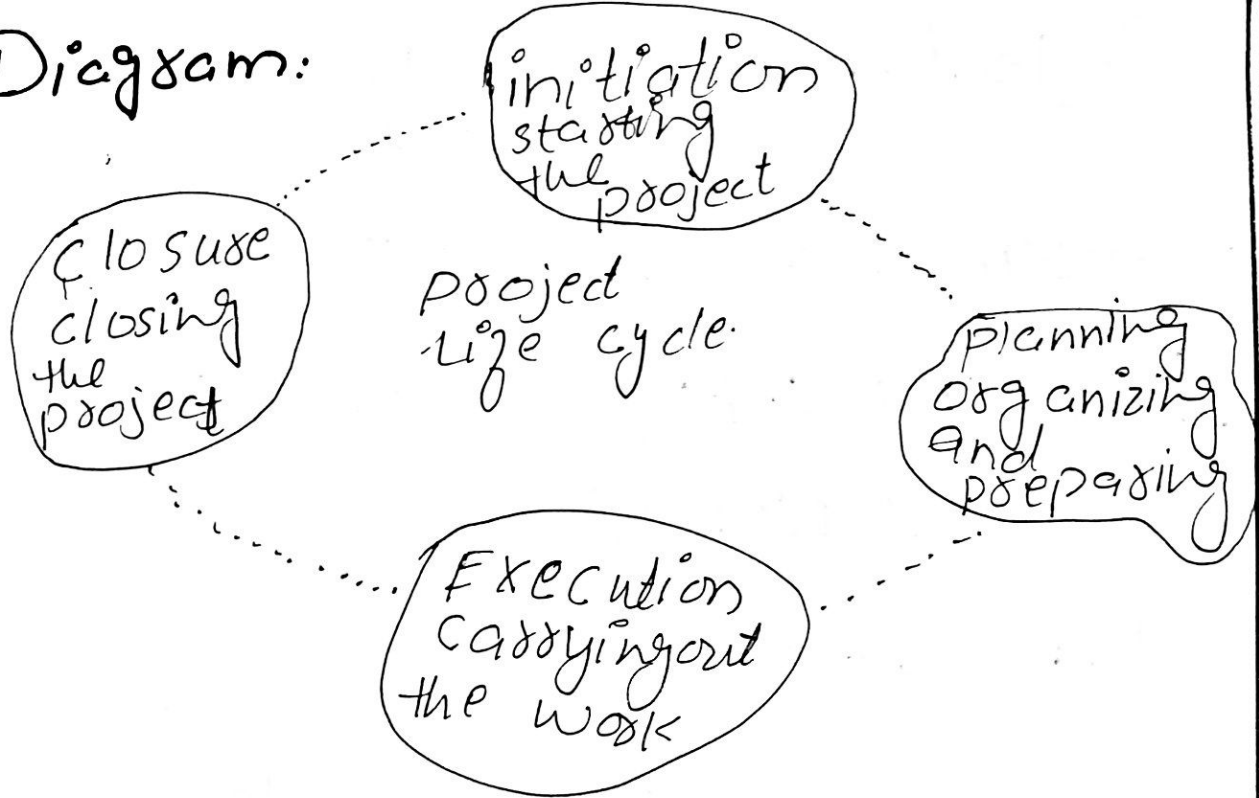 Diagram:
initiation
starting
the project
closure
closing
the
project
project
Life cycle.
planning
organizing
and
preparing
Execution
carryingout
the work